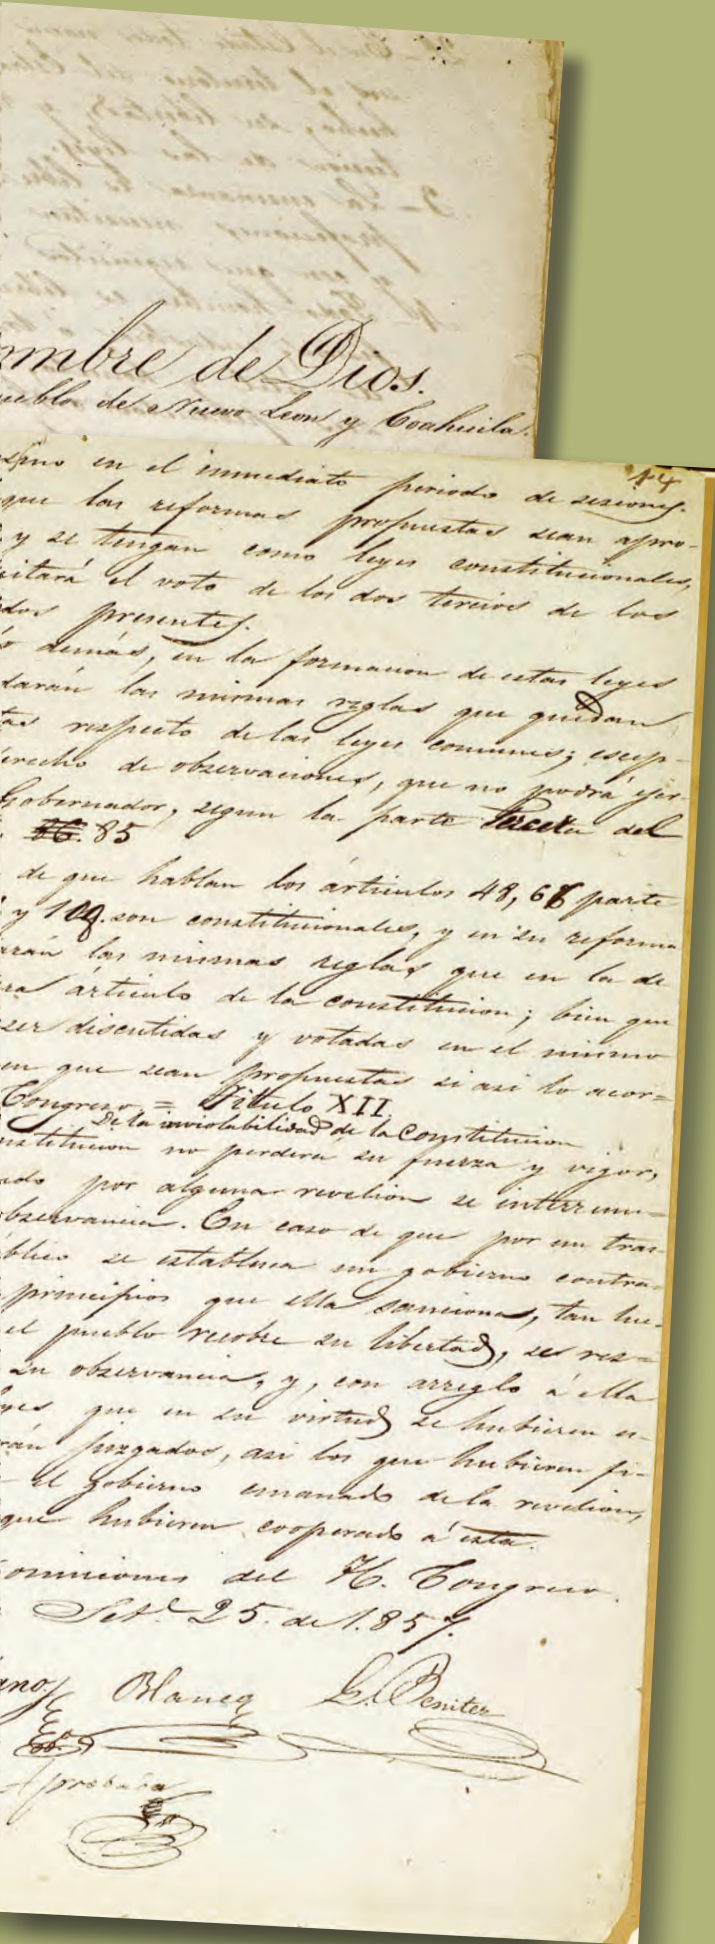 ombre de Dios.
ueblo de Nuevo Leon y Coahuila.
14
sino en el inmediato periodo de sesiones.
que las reformas propuestas sean apro-
y se tengan como leyes constitucionales,
sitará el voto de los dos tercios de los
dos presentes.
o demás, en la formacion de estas leyes
darán las mismas reglas que quedan
tas respecto de las leyes comunes; escep-
erecho de observaciones, que no podrá ejer-
Gobernador, segun la parte tercera del
85
de que hablan los ártículos 48, 66 parte
y 109. son constitucionales, y en su reforma
arán las mismas reglas que en la de
ra ártículo de la constitucion; bien que
ser discutidas y votadas en el mismo
en que sean propuestas si asi lo acor=
Congreso = Título XII.
De la inviolabilidad de la Constitucion
nstitucion no perdera su fuerza y vigor,
ndo por alguna revelion se interrum=
bservancia. En caso de que por un tras-
blico se establesca un gobierno contra-
principios que ella sanciona, tan lue-
el pueblo recobre su libertad, se res=
su observancia, y, con arreglo á ella
yes que en su virtud se hubieren es-
rán juzgados, asi los que hubieren fi-
el gobierno emanado de la revelion,
que hubieren cooperado á esta.
omisiones del H. Congreso.
Set.e 25. de 1.857.
ano, Blanco G. Benitez
Aprobada